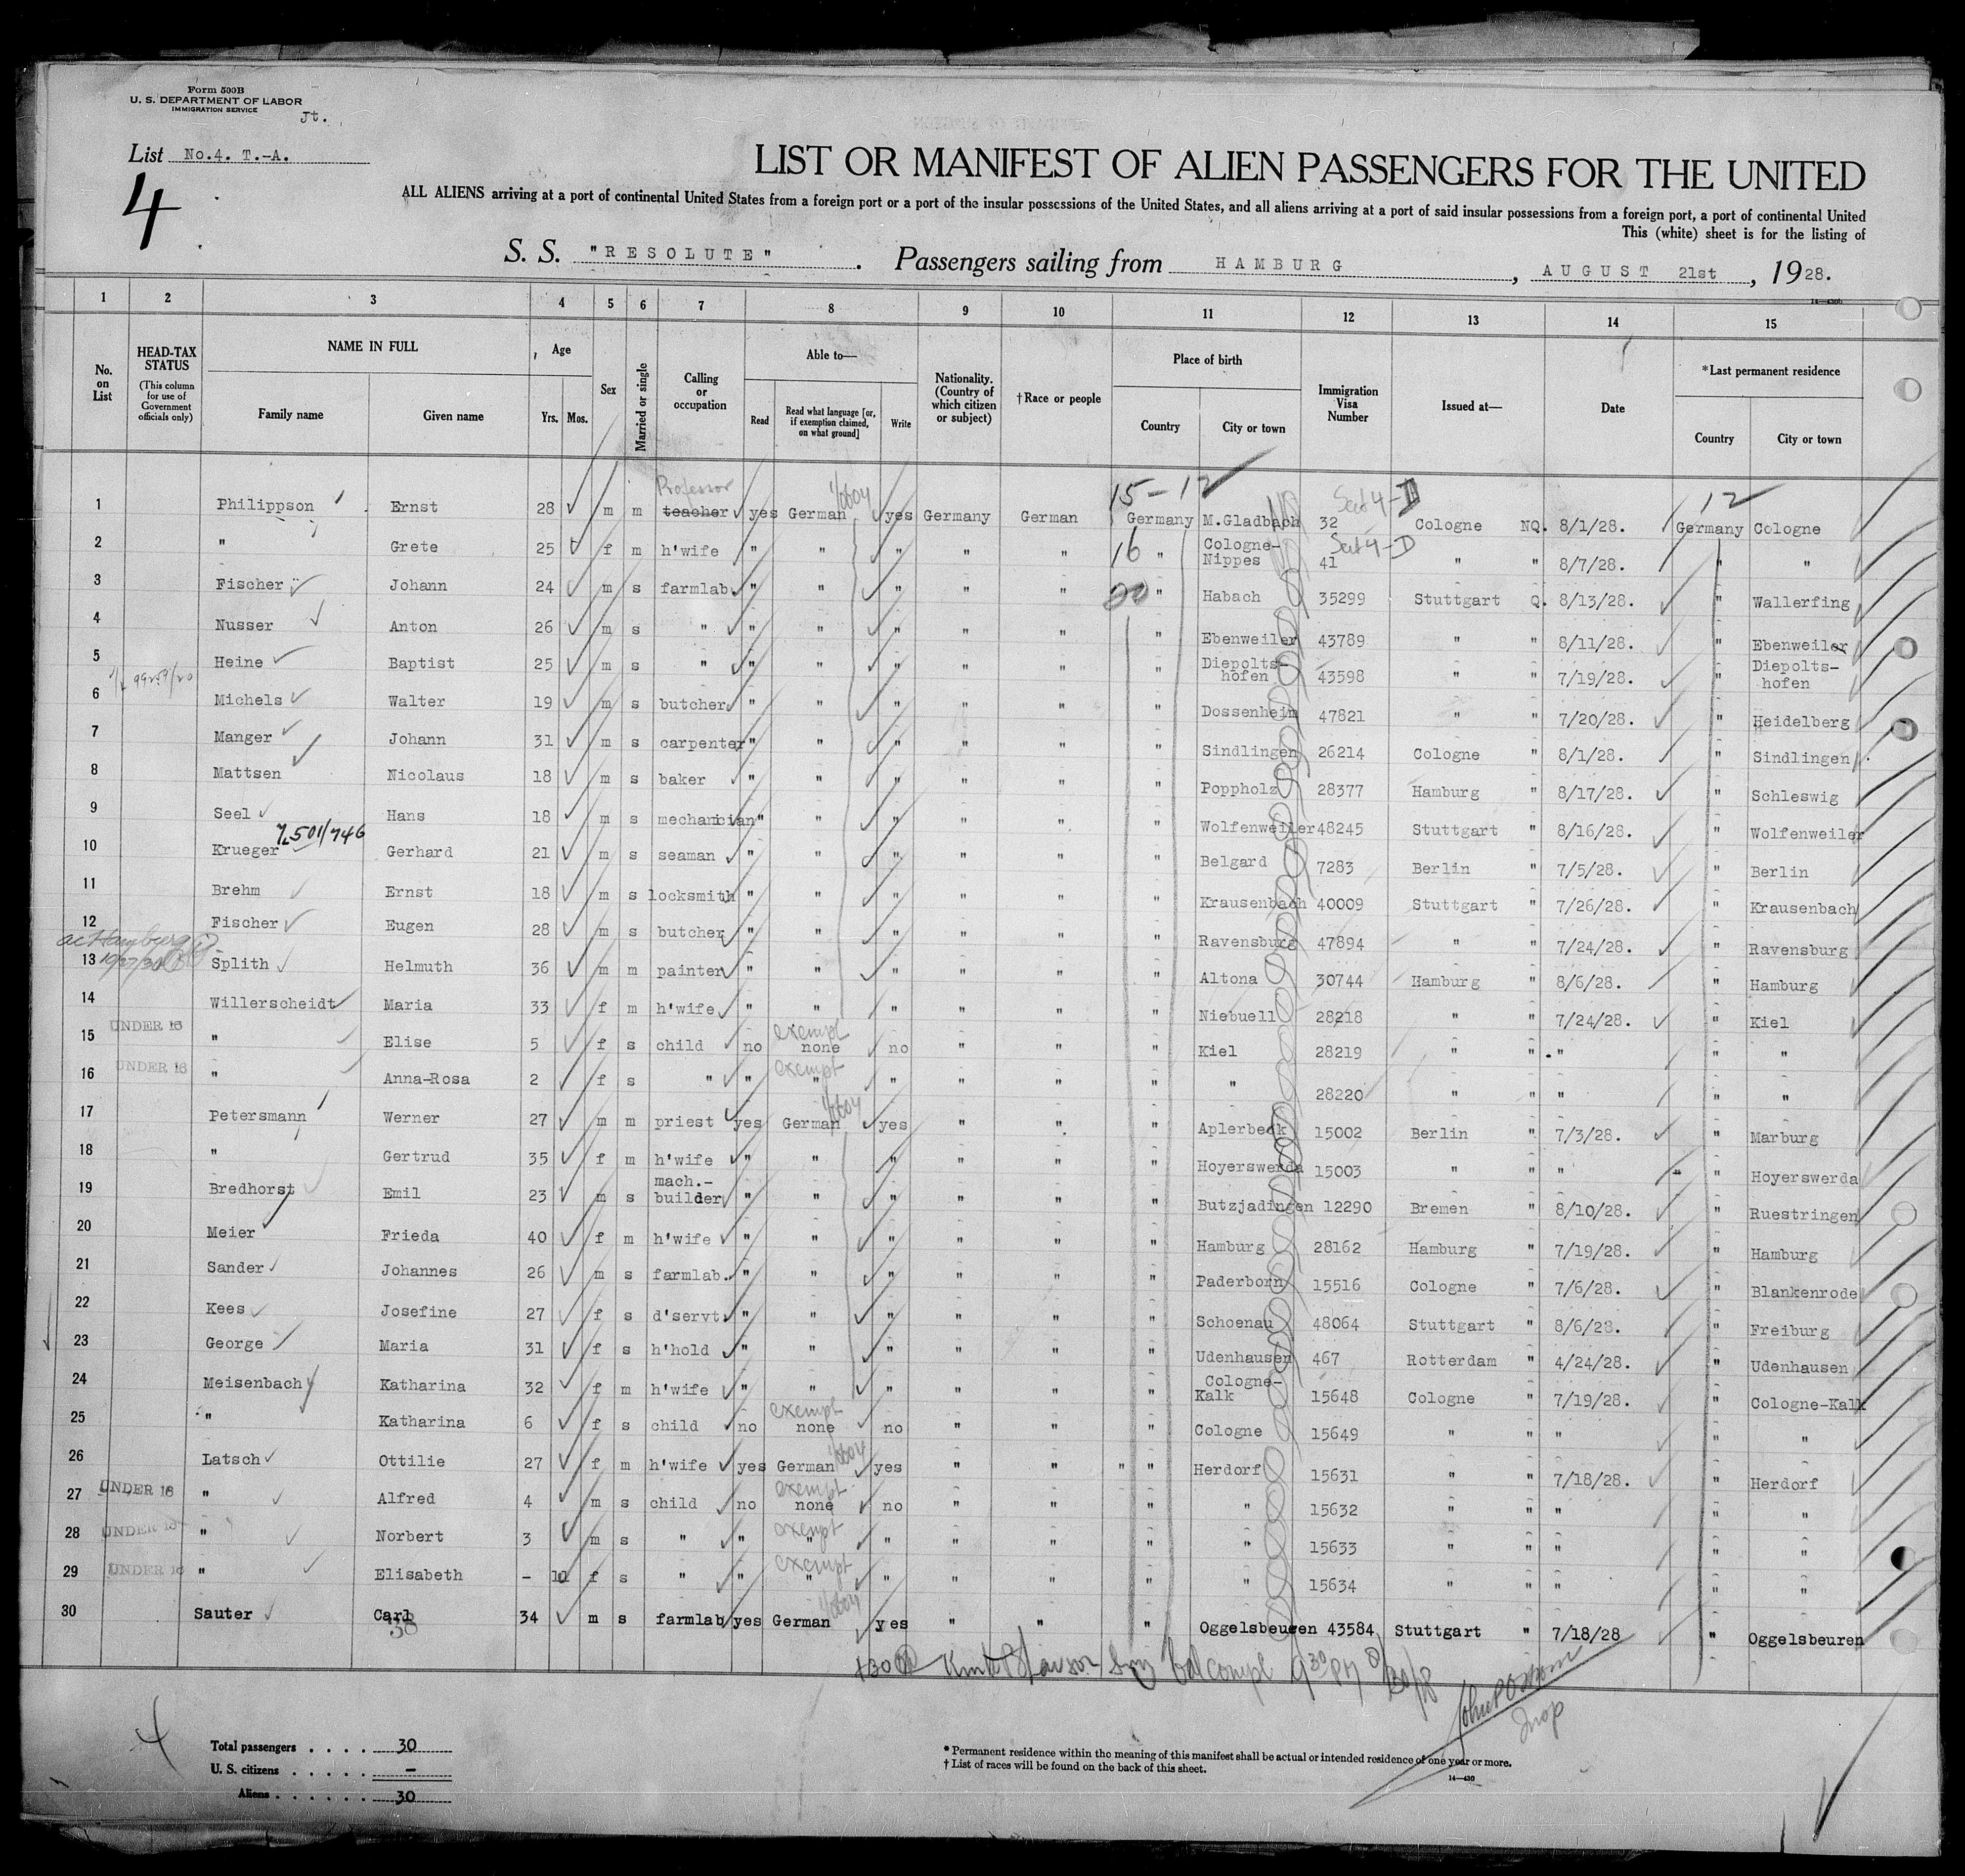 Form 500B
U. S. DEPARTMENT OF LABOR
IMMIGRATION SERVICE
Jt.
List No.4. T.-A.
4
LIST OR MANIFEST OF ALIEN PASSENGERS FOR THE UNITED
ALL ALIENS arriving at a port of continental United States from a foreign port or a port of the insular possessions of the United States, and all aliens arriving at a port of said insular possessions from a foreign port, a port of continental United
This (white) sheet is for the listing of
S. S. "RESOLUTE". Passengers sailing from HAMBURG, AUGUST 21st, 1928.
14—430b
1 2 3 4 5 6 7 8 9 10 11 12 13 14 15
No. on List
HEAD-TAX STATUS
(This column for use of Government officials only)
NAME IN FULL
Family name Given name
Age
Yrs. Mos.
Sex
Married or single
Calling or occupation
Able to—
Read
Read what language [or, if exemption claimed, on what ground]
Write
Nationality. (Country of which citizen or subject)
†Race or people
Place of birth
Country City or town
Immigration Visa Number
Issued at—
Date
*Last permanent residence
Country City or town
Professor 15-12 Sect 4-D 12
1 Philippson Ernst 28 m m teacher yes German yes Germany German Germany M.Gladbach 32 Cologne NQ. 8/1/28. Germany Cologne
2 " Grete 25 f m h'wife " " " " " 16 " Cologne-Nippes Sect 4-D 41 " " 8/7/28. " "
3 Fischer Johann 24 m s farmlab. " " " " " 20 " Habach 35299 Stuttgart Q. 8/13/28. " Wallerfing
4 Nusser Anton 26 m s " " " " " " " Ebenweiler 43789 " " 8/11/28. " Ebenweiler
5 Heine Baptist 25 m s " " " " " " " Diepolts-hofen 43598 " " 7/19/28. " Diepolts-hofen
6 Michels Walter 19 m s butcher " " " " " " Dossenheim 47821 " " 7/20/28. " Heidelberg
7 Manger Johann 31 m s carpenter " " " " " " Sindlingen 26214 Cologne " 8/1/28. " Sindlingen
8 Mattsen Nicolaus 18 m s baker " " " " " " Poppholz 28377 Hamburg " 8/17/28. " Schleswig
9 Seel Hans 18 m s mechanician " " " " " " Wolfenweiler 48245 Stuttgart " 8/16/28. " Wolfenweiler
10 Krueger Gerhard 21 m s seaman " " " " " " Belgard 7283 Berlin " 7/5/28. " Berlin
11 Brehm Ernst 18 m s locksmith " " " " " " Krausenbach 40009 Stuttgart " 7/26/28. " Krausenbach
12 Fischer Eugen 28 m s butcher " " " " " " Ravensburg 47894 " " 7/24/28. " Ravensburg
13 Splith Helmuth 36 m m painter " " " " " " Altona 30744 Hamburg " 8/6/28. " Hamburg
14 Willerscheidt Maria 33 f m h'wife " " " " " " Niebuell 28218 " " 7/24/28. " Kiel
15 UNDER 16 " Elise 5 f s child no exempt none no " " " Kiel 28219 " " " " "
16 UNDER 16 " Anna-Rosa 2 f s " " exempt " " " " " " 28220 " " " " "
17 Petersmann Werner 27 m m priest yes German yes " " " Aplerbeck 15002 Berlin " 7/3/28. " Marburg
18 " Gertrud 35 f m h'wife " " " " " " Hoyerswerda 15003 " " " " Hoyerswerda
19 Bredhorst Emil 23 m s mach.-builder " " " " " " Butzjadingen 12290 Bremen " 8/10/28. " Ruestringen
20 Meier Frieda 40 f m h'wife " " " " " " Hamburg 28162 Hamburg " 7/19/28. " Hamburg
21 Sander Johannes 26 m s farmlab. " " " " " " Paderborn 15516 Cologne " 7/6/28. " Blankenrode
22 Kees Josefine 27 f s d'servt. " " " " " " Schoenau 48064 Stuttgart " 8/6/28. " Freiburg
23 George Maria 31 f s h'hold " " " " " " Udenhausen 467 Rotterdam " 4/24/28. " Udenhausen
24 Meisenbach Katharina 32 f m h'wife " " " " " " Cologne-Kalk 15648 Cologne " 7/19/28. " Cologne-Kalk
25 " Katharina 6 f s child no exempt none no " " " Cologne 15649 " " " " "
26 Latsch Ottilie 27 f m h'wife yes German yes " " " " Herdorf 15631 " " 7/18/28. " Herdorf
27 UNDER 16 " Alfred 4 m s child no exempt none no " " " " 15632 " " " " "
28 UNDER 16 " Norbert 3 m s " " exempt " " " " " " 15633 " " " " "
29 UNDER 16 " Elisabeth - f s " " exempt " " " " " " 15634 " " " " "
30 Sauter Carl 34 m s farmlab yes German yes " " " Oggelsbeuren 43584 Stuttgart " 7/18/28 " Oggelsbeuren
38
4
Total passengers . . . . 30
U. S. citizens . . . . . -
Aliens . . . . . . 30
* Permanent residence within the meaning of this manifest shall be actual or intended residence of one year or more.
† List of races will be found on the back of this sheet.
14—430